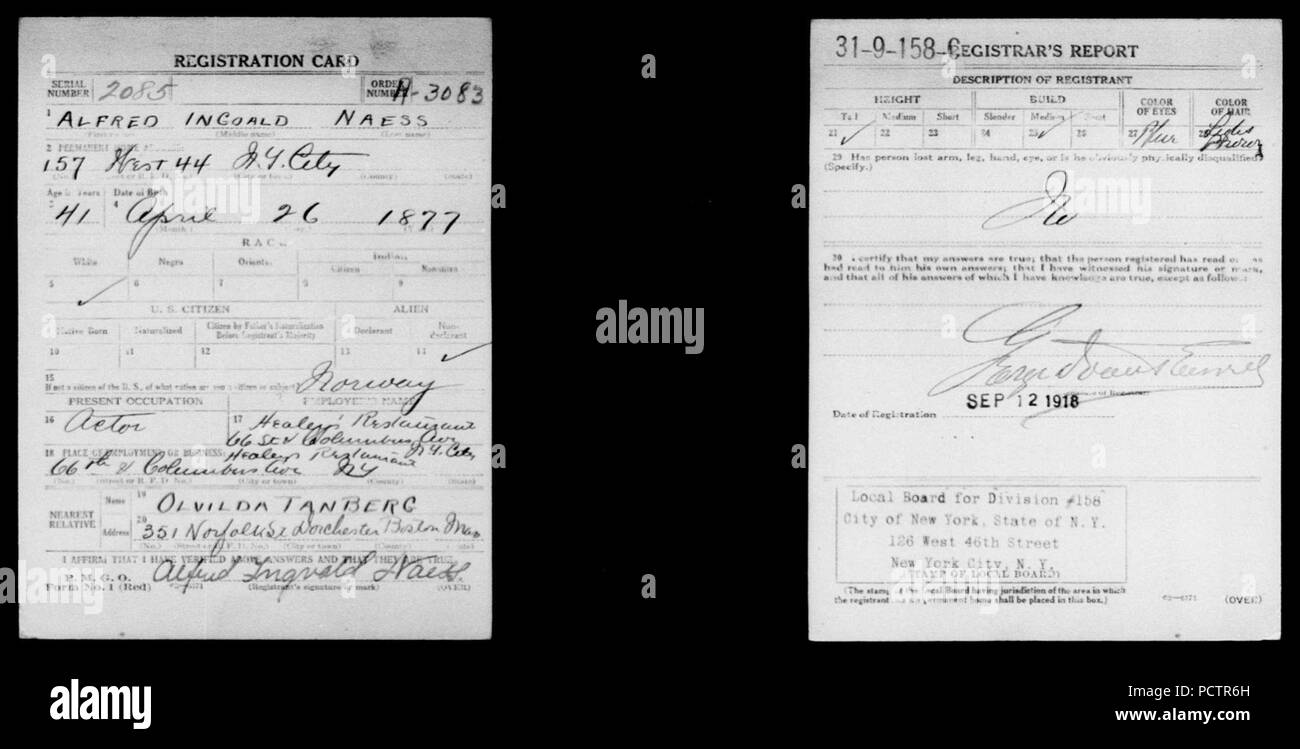 REGISTRATION CARD
SERIAL NUMBER 2085 ORDER NUMBER A-3083
1 ALFRED INGOALD NAESS
(First name) (Middle name) (Last name)
2 PERMANENT HOME ADDRESS:
157 West 44 N.Y. City
(No.) (Street or R. F. D. No.) (City or town) (County) (State)
Age in Years Date of Birth
3 41 4 April 26 1877
(Month) (Day) (Year)
RACE
White Negro Oriental Indian
Citizen Noncitizen
5 ✓ 6 7 8 9
U. S. CITIZEN ALIEN
Native Born Naturalized Citizen by Father's Naturalization Before Registrant's Majority Declarant Non-declarant
10 11 12 13 14 ✓
15
If not a citizen of the U. S., of what nation are you a citizen or subject? Norway
PRESENT OCCUPATION EMPLOYER'S NAME
16 Actor 17 Healey's Restaurant
66 St & Columbus Ave
18 PLACE OF EMPLOYMENT OR BUSINESS: Healeys Restaurant N.Y. City
66th & Columbus Ave NY
(No.) (Street or R. F. D. No.) (City or town) (County) (State)
NEAREST RELATIVE Name 19 OLVILDA TANBERG
Address 20 351 Norfolk St Dorchester Boston Mass
(No.) (Street or R. F. D. No.) (City or town) (County) (State)
I AFFIRM THAT I HAVE VERIFIED ABOVE ANSWERS AND THAT THEY ARE TRUE
P. M. G. O.
Form No. 1 (Red) Alfred Ingvald Naess
(Registrant's signature or mark) (OVER)
31-9-158-C REGISTRAR'S REPORT
DESCRIPTION OF REGISTRANT
HEIGHT BUILD COLOR OF EYES COLOR OF HAIR
Tall Medium Short Slender Medium Stout
21 ✓ 22 23 24 25 ✓ 26 27 Blue 28 Brown
29 Has person lost arm, leg, hand, eye, or is he obviously physically disqualified?
(Specify.)
No
30 I certify that my answers are true; that the person registered has read or has
had read to him his own answers; that I have witnessed his signature or mark,
and that all of his answers of which I have knowledge are true, except as follows:
(Signature of Registrar)
Date of Registration SEP 12 1918
Local Board for Division #158
City of New York, State of N.Y.
126 West 46th Street
New York City, N.Y.
(STAMP OF LOCAL BOARD)
(The stamp of the Local Board having jurisdiction of the area in which
the registrant has his permanent home shall be placed in this box.) (OVER)
alamy
a
alamy
Image ID: PCTR6H
www.alamy.com